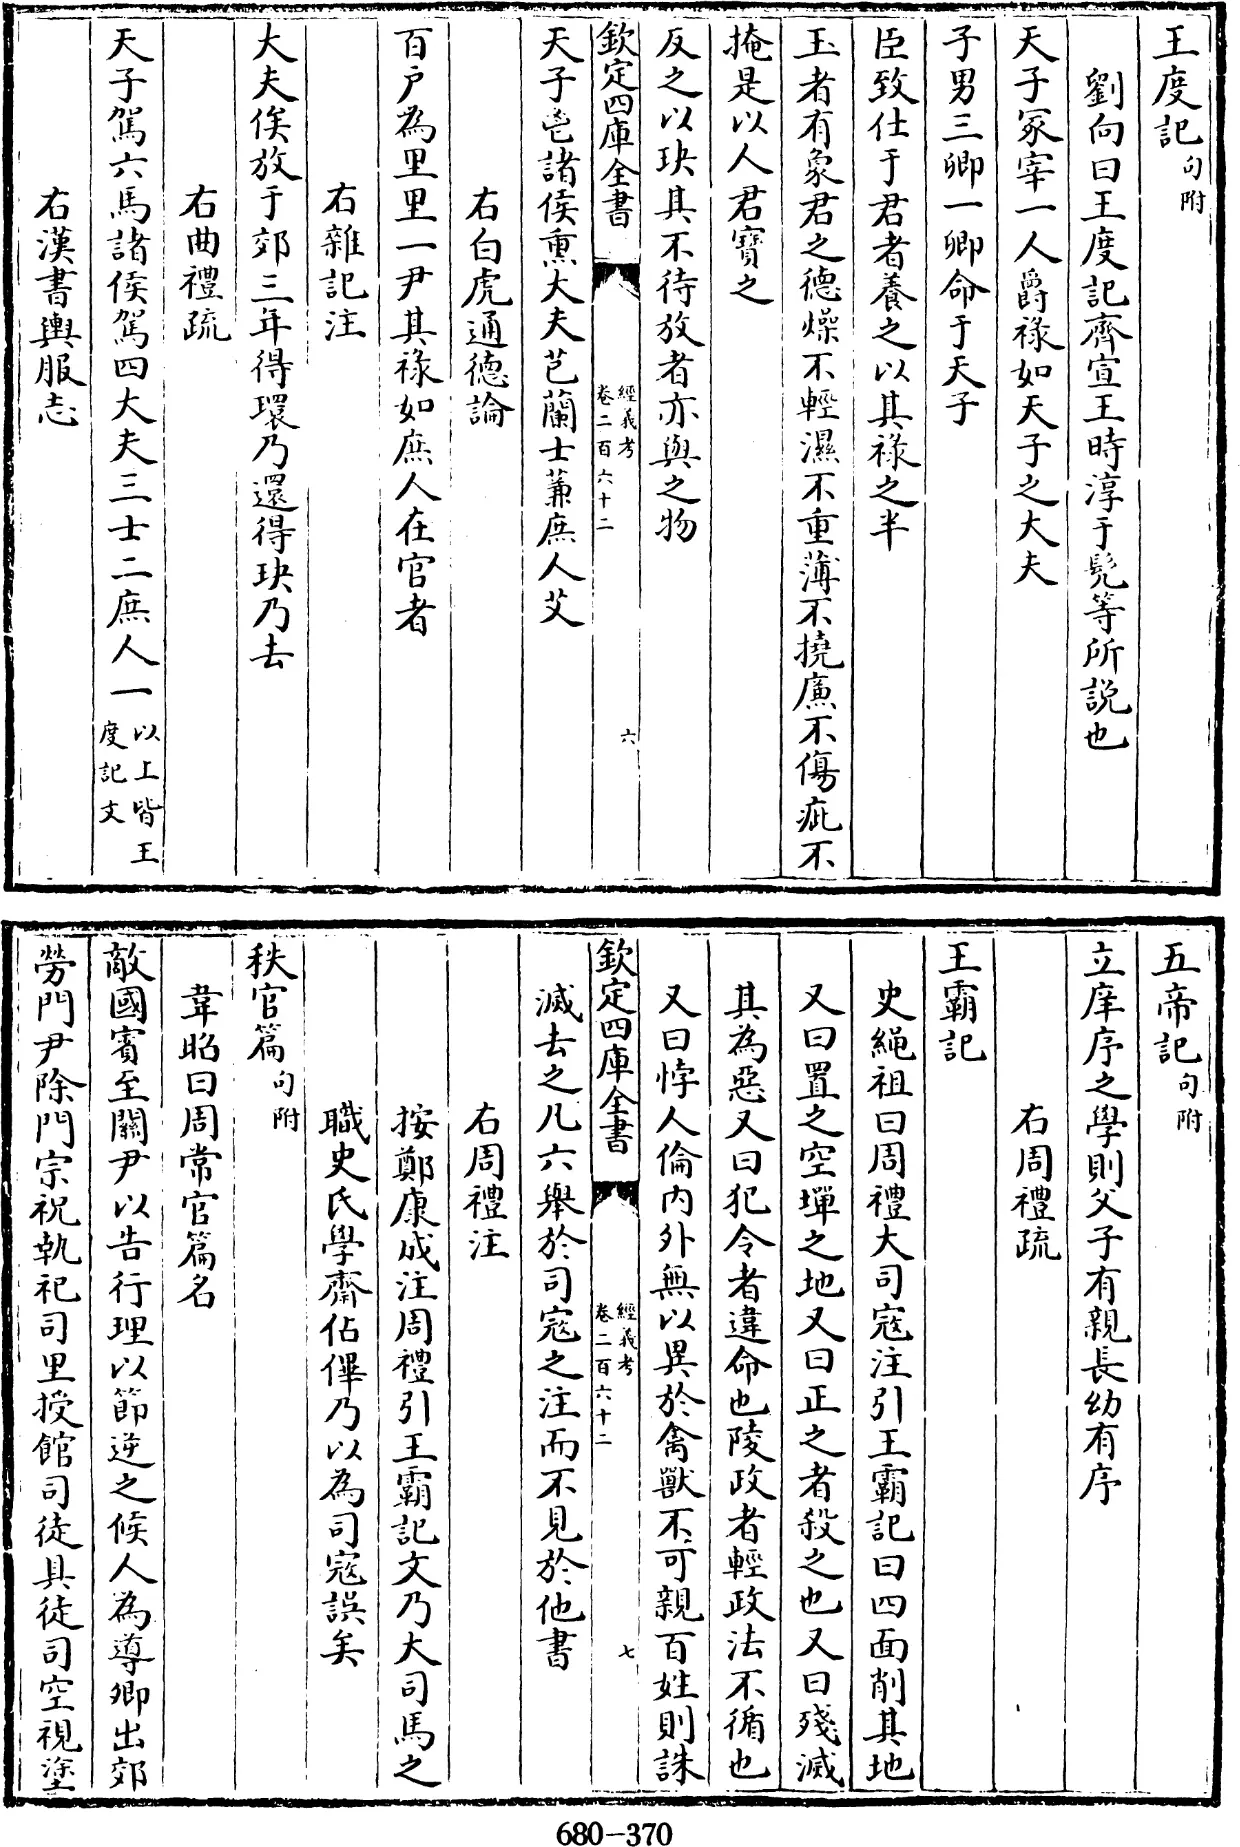 王度記句附
劉向曰王度記齊宣王時淳于髡等所說也
天子冢宰一人爵祿如天子之大夫
子男三卿一卿命于天子
臣致仕于君者養之以其祿之半
玉者有象君之德燥不輕濕不重薄不撓廉不傷疵不
掩是以人君寶之
反之以玦其不待放者亦與之物
欽定四庫全書
經義考
卷二百六十二
六
天子鬯諸侯熏大夫芑蘭士蕭庶人艾
右白虎通德論
百户為里里一尹其祿如庶人在官者
右雜記注
大夫俟放于郊三年得環乃還得玦乃去
右曲禮疏
天子駕六馬諸侯駕四大夫三士二庶人一以上皆王
度記文
右漢書輿服志
五帝記句附
立庠序之學則父子有親長幼有序
右周禮疏
王霸記
史繩祖曰周禮大司寇注引王霸記曰四面削其地
又曰置之空墠之地又曰正之者殺之也又曰殘滅
其為惡又曰犯令者違命也陵政者輕政法不循也
又曰悖人倫内外無以異於禽獸不可親百姓則誅
欽定四庫全書
經義考
卷二百六十二
七
滅去之凡六舉於司寇之注而不見於他書
右周禮注
按鄭康成注周禮引王霸記文乃大司馬之
職史氏學齋佔㑌乃以為司寇誤矣
秩官篇句附
韋昭曰周常官篇名
敵國賓至關尹以告行理以節逆之候人為導卿出郊
勞門尹除門宗祝執祀司里授館司徒具徒司空視塗
680-370